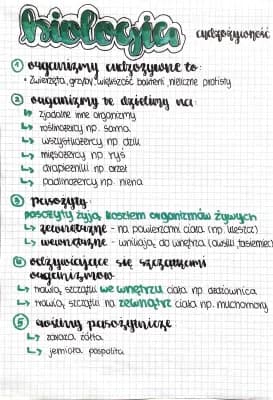 biologia
cudzożywność
① organizmy cudzożywne to:
• zwierzęta, grzyby, większość bakterii, nieliczne protisty
② organizmy te dzielimy na:
↳ zjadalne inne organizmy
↳ roślinożercy np. sarna
↳ wszystkożercy np. dzik
↳ mięsożercy np. ryś
↳ drapieżniki np. orzeł
↳ padlinożercy np. hiena
③ pasożyty:
pasożyty żyją kosztem organizmów żywych
↳ zewnętrzne - na powierzchni ciała (np. kleszcz)
↳ wewnętrzne - wnikają do wnętrza (owsiki, tasiemiec)
④ odżywiające się szczątkami
organizmów
↳ trawią szczątki we wnętrzu ciała np. dżdżownica
↳ trawią szczątki na zewnątrz ciała np. muchomory
⑤ rośliny pasożytnicze
↳ zaraza żółta
↳ jemioła pospolita